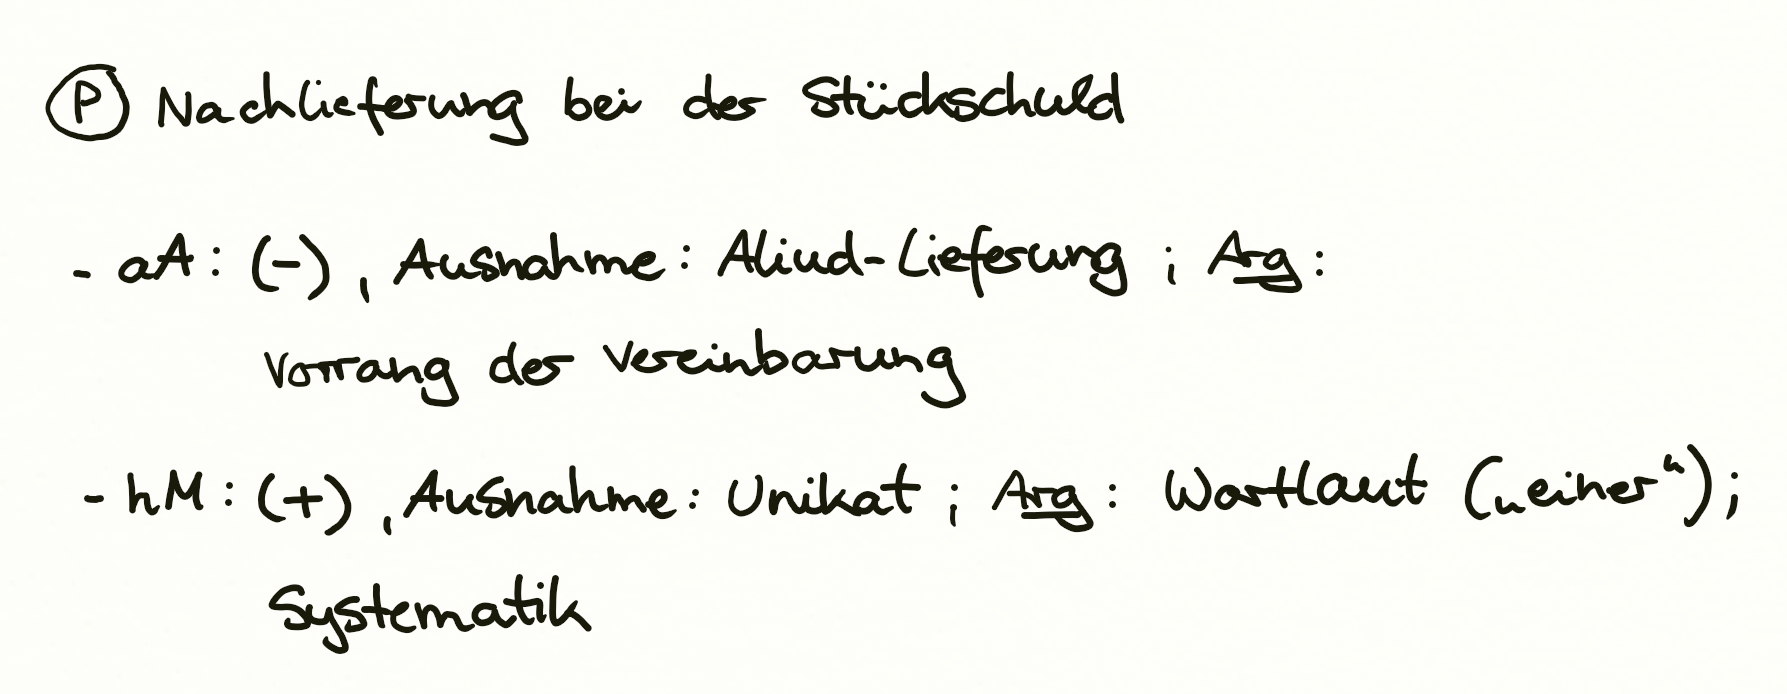 Ⓟ Nachlieferung bei der Stückschuld
- aA: (-), Ausnahme: Aliud-Lieferung ; Arg:
Vorrang der Vereinbarung
- hM: (+), Ausnahme: Unikat ; Arg: Wortlaut („einer“);
Systematik